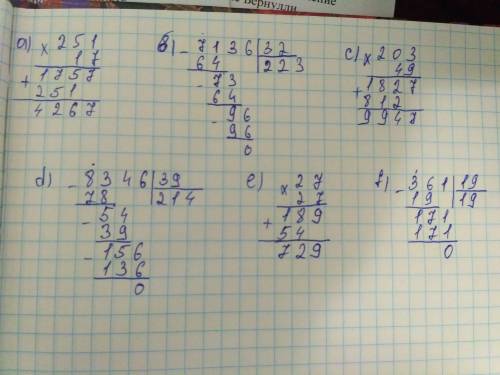 е Вернулли
a) × 251
17
+ 1757
251
4267
b) - 7136 | 32
64 | 223
- 73
64
- 96
96
0
c) × 203
49
+ 1827
812
9947
d) - 8346 | 39
78 | 214
- 54
39
- 156
136
0
e) × 27
27
+ 189
54
729
f) - 361 | 19
19 | 19
171
171
0